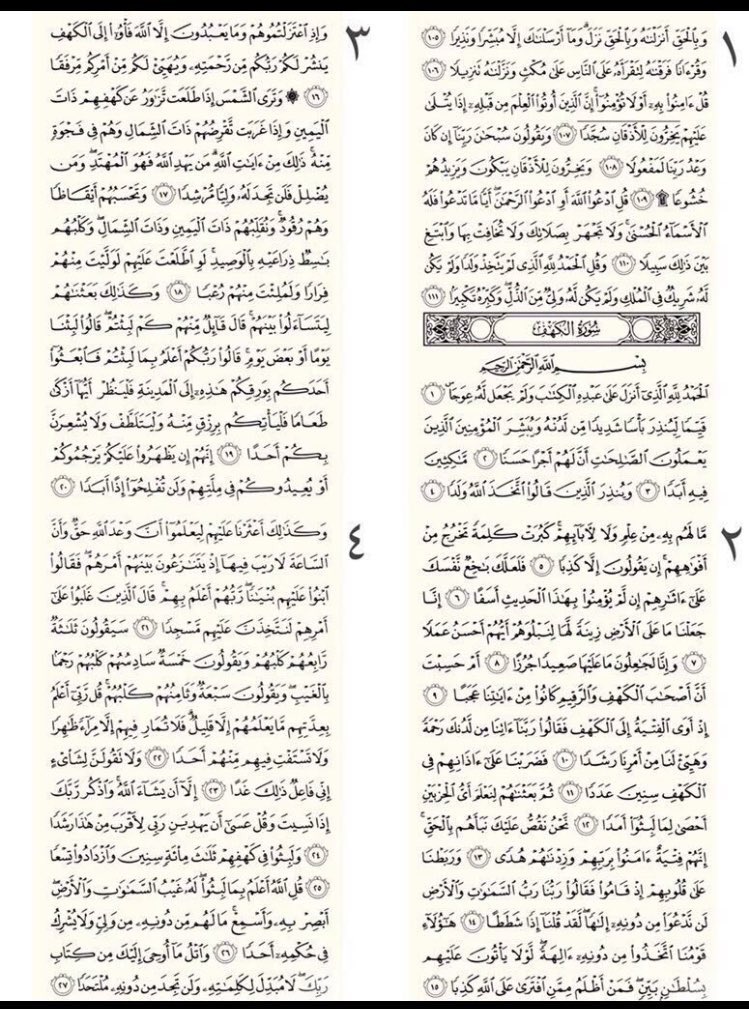 ١
وَبِالْحَقِّ أَنزَلْنَٰهُ وَبِالْحَقِّ نَزَلَ وَمَآ أَرْسَلْنَٰكَ إِلَّا مُبَشِّرًا وَنَذِيرًا ١٠٥
وَقُرْءَانًا فَرَقْنَٰهُ لِتَقْرَأَهُۥ عَلَى النَّاسِ عَلَىٰ مُكْثٍ وَنَزَّلْنَٰهُ تَنزِيلًا ١٠٦
قُلْ ءَامِنُوا۟ بِهِۦٓ أَوْ لَا تُؤْمِنُوٓا۟ إِنَّ الَّذِينَ أُوتُوا۟ الْعِلْمَ مِن قَبْلِهِۦٓ إِذَا يُتْلَىٰ
عَلَيْهِمْ يَخِرُّونَ لِلْأَذْقَانِ سُجَّدًا ١٠٧ وَيَقُولُونَ سُبْحَٰنَ رَبِّنَآ إِن كَانَ
وَعْدُ رَبِّنَا لَمَفْعُولًا ١٠٨ وَيَخِرُّونَ لِلْأَذْقَانِ يَبْكُونَ وَيَزِيدُهُمْ
خُشُوعًا ۩ ١٠٩ قُلِ ادْعُوا۟ اللَّهَ أَوِ ادْعُوا۟ الرَّحْمَٰنَ أَيًّا مَّا تَدْعُوا۟ فَلَهُ
الْأَسْمَآءُ الْحُسْنَىٰ وَلَا تَجْهَرْ بِصَلَاتِكَ وَلَا تُخَافِتْ بِهَا وَابْتَغِ
بَيْنَ ذَٰلِكَ سَبِيلًا ١١٠ وَقُلِ الْحَمْدُ لِلَّهِ الَّذِى لَمْ يَتَّخِذْ وَلَدًا وَلَمْ يَكُن
لَّهُۥ شَرِيكٌ فِى الْمُلْكِ وَلَمْ يَكُن لَّهُۥ وَلِىٌّ مِّنَ الذُّلِّ وَكَبِّرْهُ تَكْبِيرًا ١١١
سُورَةُ الكَهْفِ
بِسْمِ اللَّهِ الرَّحْمَٰنِ الرَّحِيمِ
الْحَمْدُ لِلَّهِ الَّذِىٓ أَنزَلَ عَلَىٰ عَبْدِهِ الْكِتَٰبَ وَلَمْ يَجْعَل لَّهُۥ عِوَجَا ١
قَيِّمًا لِّيُنذِرَ بَأْسًا شَدِيدًا مِّن لَّدُنْهُ وَيُبَشِّرَ الْمُؤْمِنِينَ الَّذِينَ
يَعْمَلُونَ الصَّٰلِحَٰتِ أَنَّ لَهُمْ أَجْرًا حَسَنًا ٢ مَّٰكِثِينَ
فِيهِ أَبَدًا ٣ وَيُنذِرَ الَّذِينَ قَالُوا۟ اتَّخَذَ اللَّهُ وَلَدًا ٤
٢
مَّا لَهُم بِهِۦ مِنْ عِلْمٍ وَلَا لِءَابَآئِهِمْ كَبُرَتْ كَلِمَةً تَخْرُجُ مِنْ
أَفْوَٰهِهِمْ إِن يَقُولُونَ إِلَّا كَذِبًا ٥ فَلَعَلَّكَ بَٰخِعٌ نَّفْسَكَ
عَلَىٰٓ ءَاثَٰرِهِمْ إِن لَّمْ يُؤْمِنُوا۟ بِهَٰذَا الْحَدِيثِ أَسَفًا ٦ إِنَّا
جَعَلْنَا مَا عَلَى الْأَرْضِ زِينَةً لَّهَا لِنَبْلُوَهُمْ أَيُّهُمْ أَحْسَنُ عَمَلًا
٧ وَإِنَّا لَجَٰعِلُونَ مَا عَلَيْهَا صَعِيدًا جُرُزًا ٨ أَمْ حَسِبْتَ
أَنَّ أَصْحَٰبَ الْكَهْفِ وَالرَّقِيمِ كَانُوا۟ مِنْ ءَايَٰتِنَا عَجَبًا ٩
إِذْ أَوَى الْفِتْيَةُ إِلَى الْكَهْفِ فَقَالُوا۟ رَبَّنَآ ءَاتِنَا مِن لَّدُنكَ رَحْمَةً
وَهَيِّئْ لَنَا مِنْ أَمْرِنَا رَشَدًا ١٠ فَضَرَبْنَا عَلَىٰٓ ءَاذَانِهِمْ فِى
الْكَهْفِ سِنِينَ عَدَدًا ١١ ثُمَّ بَعَثْنَٰهُمْ لِنَعْلَمَ أَىُّ الْحِزْبَيْنِ
أَحْصَىٰ لِمَا لَبِثُوٓا۟ أَمَدًا ١٢ نَّحْنُ نَقُصُّ عَلَيْكَ نَبَأَهُم بِالْحَقِّ
إِنَّهُمْ فِتْيَةٌ ءَامَنُوا۟ بِرَبِّهِمْ وَزِدْنَٰهُمْ هُدًى ١٣ وَرَبَطْنَا
عَلَىٰ قُلُوبِهِمْ إِذْ قَامُوا۟ فَقَالُوا۟ رَبُّنَا رَبُّ السَّمَٰوَٰتِ وَالْأَرْضِ
لَن نَّدْعُوَا۟ مِن دُونِهِۦٓ إِلَٰهًا لَّقَدْ قُلْنَآ إِذًا شَطَطًا ١٤ هَٰٓؤُلَآءِ
قَوْمُنَا اتَّخَذُوا۟ مِن دُونِهِۦٓ ءَالِهَةً لَّوْلَا يَأْتُونَ عَلَيْهِم
بِسُلْطَٰنٍ بَيِّنٍ فَمَنْ أَظْلَمُ مِمَّنِ افْتَرَىٰ عَلَى اللَّهِ كَذِبًا ١٥
٣
وَإِذِ اعْتَزَلْتُمُوهُمْ وَمَا يَعْبُدُونَ إِلَّا اللَّهَ فَأْوُۥٓا۟ إِلَى الْكَهْفِ
يَنشُرْ لَكُمْ رَبُّكُم مِّن رَّحْمَتِهِۦ وَيُهَيِّئْ لَكُم مِّنْ أَمْرِكُم مِّرْفَقًا
١٦ ۞ وَتَرَى الشَّمْسَ إِذَا طَلَعَت تَّزَٰوَرُ عَن كَهْفِهِمْ ذَاتَ
الْيَمِينِ وَإِذَا غَرَبَت تَّقْرِضُهُمْ ذَاتَ الشِّمَالِ وَهُمْ فِى فَجْوَةٍ
مِّنْهُ ذَٰلِكَ مِنْ ءَايَٰتِ اللَّهِ مَن يَهْدِ اللَّهُ فَهُوَ الْمُهْتَدِ وَمَن
يُضْلِلْ فَلَن تَجِدَ لَهُۥ وَلِيًّا مُّرْشِدًا ١٧ وَتَحْسَبُهُمْ أَيْقَاظًا
وَهُمْ رُقُودٌ وَنُقَلِّبُهُمْ ذَاتَ الْيَمِينِ وَذَاتَ الشِّمَالِ وَكَلْبُهُم
بَٰسِطٌ ذِرَاعَيْهِ بِالْوَصِيدِ لَوِ اطَّلَعْتَ عَلَيْهِمْ لَوَلَّيْتَ مِنْهُمْ
فِرَارًا وَلَمُلِئْتَ مِنْهُمْ رُعْبًا ١٨ وَكَذَٰلِكَ بَعَثْنَٰهُمْ
لِيَتَسَآءَلُوا۟ بَيْنَهُمْ قَالَ قَآئِلٌ مِّنْهُمْ كَمْ لَبِثْتُمْ قَالُوا۟ لَبِثْنَا
يَوْمًا أَوْ بَعْضَ يَوْمٍ قَالُوا۟ رَبُّكُمْ أَعْلَمُ بِمَا لَبِثْتُمْ فَابْعَثُوٓا۟
أَحَدَكُم بِوَرِقِكُمْ هَٰذِهِۦٓ إِلَى الْمَدِينَةِ فَلْيَنظُرْ أَيُّهَآ أَزْكَىٰ
طَعَامًا فَلْيَأْتِكُم بِرِزْقٍ مِّنْهُ وَلْيَتَلَطَّفْ وَلَا يُشْعِرَنَّ
بِكُمْ أَحَدًا ١٩ إِنَّهُمْ إِن يَظْهَرُوا۟ عَلَيْكُمْ يَرْجُمُوكُمْ
أَوْ يُعِيدُوكُمْ فِى مِلَّتِهِمْ وَلَن تُفْلِحُوٓا۟ إِذًا أَبَدًا ٢٠
٤
وَكَذَٰلِكَ أَعْثَرْنَا عَلَيْهِمْ لِيَعْلَمُوٓا۟ أَنَّ وَعْدَ اللَّهِ حَقٌّ وَأَنَّ
السَّاعَةَ لَا رَيْبَ فِيهَآ إِذْ يَتَنَٰزَعُونَ بَيْنَهُمْ أَمْرَهُمْ فَقَالُوا۟
ابْنُوا۟ عَلَيْهِم بُنْيَٰنًا رَّبُّهُمْ أَعْلَمُ بِهِمْ قَالَ الَّذِينَ غَلَبُوا۟ عَلَىٰٓ
أَمْرِهِمْ لَنَتَّخِذَنَّ عَلَيْهِم مَّسْجِدًا ٢١ سَيَقُولُونَ ثَلَٰثَةٌ
رَّابِعُهُمْ كَلْبُهُمْ وَيَقُولُونَ خَمْسَةٌ سَادِسُهُمْ كَلْبُهُمْ رَجْمًا
بِالْغَيْبِ وَيَقُولُونَ سَبْعَةٌ وَثَامِنُهُمْ كَلْبُهُمْ قُل رَّبِّىٓ أَعْلَمُ
بِعِدَّتِهِم مَّا يَعْلَمُهُمْ إِلَّا قَلِيلٌ فَلَا تُمَارِ فِيهِمْ إِلَّا مِرَآءً ظَٰهِرًا
وَلَا تَسْتَفْتِ فِيهِم مِّنْهُمْ أَحَدًا ٢٢ وَلَا تَقُولَنَّ لِشَا۟ىْءٍ
إِنِّى فَاعِلٌ ذَٰلِكَ غَدًا ٢٣ إِلَّآ أَن يَشَآءَ اللَّهُ وَاذْكُر رَّبَّكَ
إِذَا نَسِيتَ وَقُلْ عَسَىٰٓ أَن يَهْدِيَنِ رَبِّى لِأَقْرَبَ مِنْ هَٰذَا رَشَدًا
٢٤ وَلَبِثُوا۟ فِى كَهْفِهِمْ ثَلَٰثَ مِا۟ئَةٍ سِنِينَ وَازْدَادُوا۟ تِسْعًا
٢٥ قُلِ اللَّهُ أَعْلَمُ بِمَا لَبِثُوا۟ لَهُۥ غَيْبُ السَّمَٰوَٰتِ وَالْأَرْضِ
أَبْصِرْ بِهِۦ وَأَسْمِعْ مَا لَهُم مِّن دُونِهِۦ مِن وَلِىٍّ وَلَا يُشْرِكُ
فِى حُكْمِهِۦٓ أَحَدًا ٢٦ وَاتْلُ مَآ أُوحِىَ إِلَيْكَ مِن كِتَابِ
رَبِّكَ لَا مُبَدِّلَ لِكَلِمَٰتِهِۦ وَلَن تَجِدَ مِن دُونِهِۦ مُلْتَحَدًا ٢٧